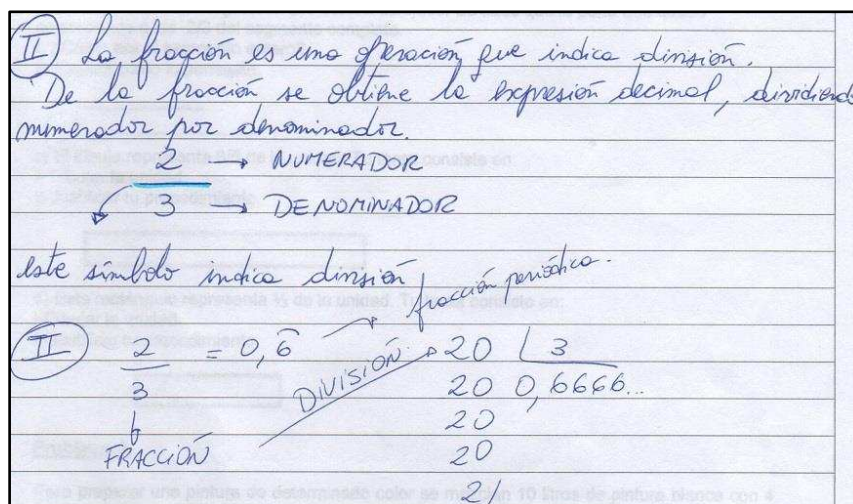 II) La fracción es una operación que indica división.
De la fracción se obtiene la expresión decimal, dividiendo
numerador por denominador.
2 → NUMERADOR
3 → DENOMINADOR
este símbolo indica división
fracción periódica.
II) 2 = 0,6̄ DIVISIÓN 20 3
3 20 0,6666...
20
FRACCIÓN 20
2/